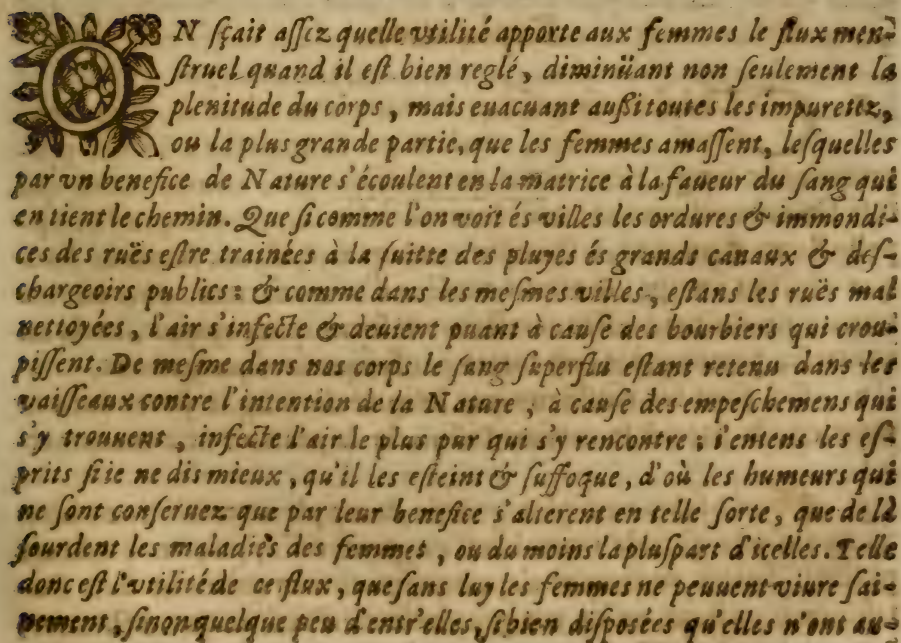 ON ſçait aſſez quelle vtilité apporte aux femmes le flux men-
ſtruel quand il eſt bien reglé, diminüant non ſeulement la
plenitude du corps, mais euacuant außi toutes les impuretez,
ou la plus grande partie, que les femmes amaſſent, leſquelles
par vn benefice de Nature s'écoulent en la matrice à la faueur du ſang qui
en tient le chemin. Que ſi comme l'on voit és villes les ordures & immondi-
ces des ruës eſtre trainées à la ſuitte des pluyes és grands canaux & deſ-
chargeoirs publics: & comme dans les meſmes villes, eſtans les ruës mal
nettoyées, l'air s'infecte & deuient puant à cauſe des bourbiers qui crou-
piſſent. De meſme dans nos corps le ſang ſuperflu eſtant retenu dans les
vaiſſeaux contre l'intention de la Nature, à cauſe des empeſchemens qui
s'y trouuent, infecte l'air le plus pur qui s'y rencontre; i'entens les eſ-
prits ſi ie ne dis mieux, qu'il les eſteint & ſuffoque, d'où les humeurs qui
ne ſont conſeruez que par leur benefice s'alterent en telle ſorte, que de là
ſourdent les maladiès des femmes, ou du moins la pluſpart d'icelles. Telle
donc eſt l'vtilité de ce flux, que ſans luy les femmes ne peuuent viure ſai-
nement, ſinon quelque peu d'entr'elles, ſi bien diſposées qu'elles n'ont au-